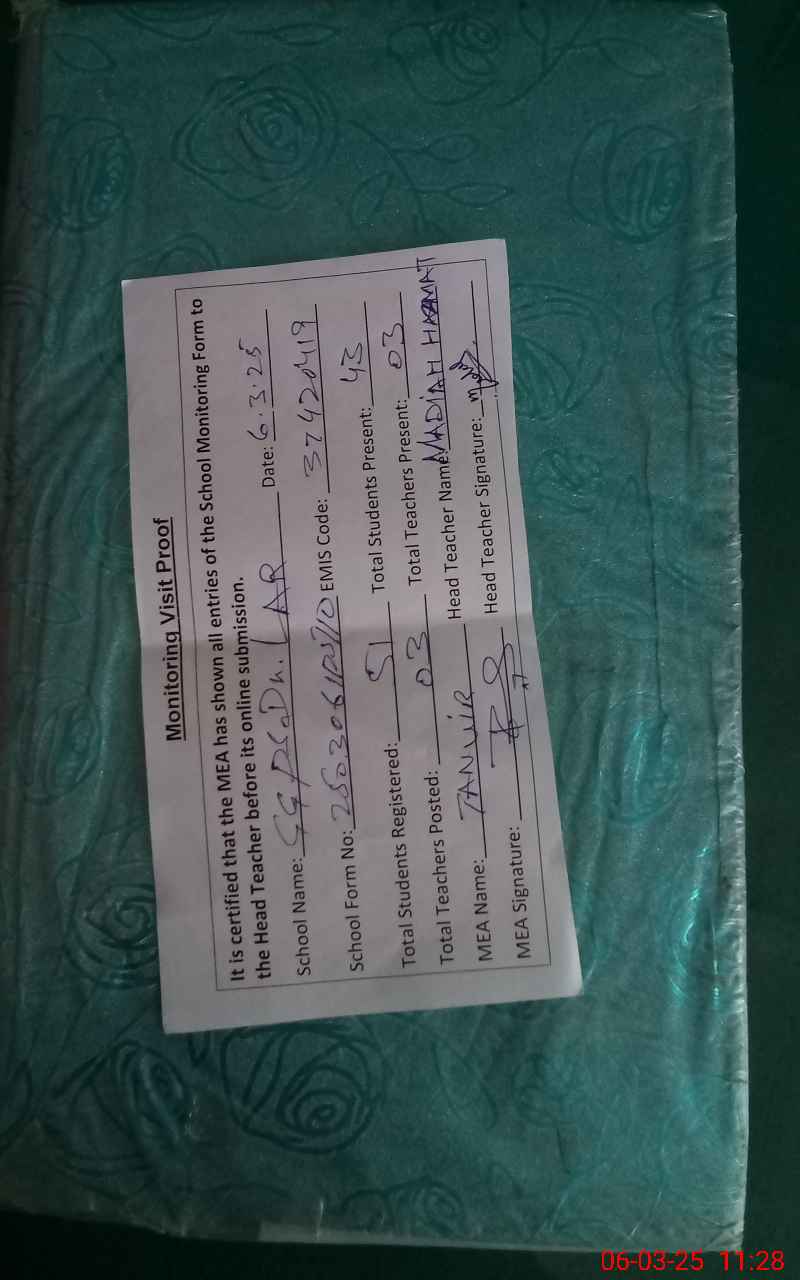 Monitoring Visit Proof
It is certified that the MEA has shown all entries of the School Monitoring Form to
the Head Teacher before its online submission.
School Name: GGPS Dh. LAR Date: 6.3.25
School Form No: EMIS Code: 37420419
Total Students Registered: 51 Total Students Present: 43
Total Teachers Posted: 03 Total Teachers Present: 03
MEA Name: TANVIR Head Teacher Name: MADIAH
MEA Signature: Head Teacher Signature:
06-03-25 11:28